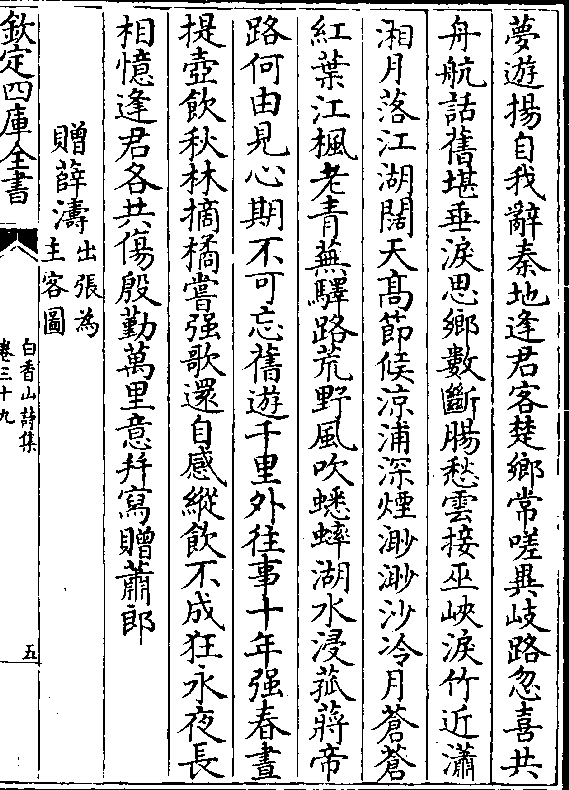 夢遊揚自我辭秦地逢君客楚鄉常嗟異岐路忽喜共
舟航話舊堪垂淚思鄉數斷腸愁雲接巫峽淚竹近瀟
湘月落江湖闊天髙節候涼浦深煙渺渺沙冷月蒼蒼
紅葉江楓老青蕪驛路荒野風吹蟋蟀湖水浸菰蔣帝
路何由見心期不可忘舊遊千里外往事十年强春晝
提壺飲秋林摘橘嘗强歌還自感縱飲不成狂永夜長
相憶逢君各共傷殷勤萬里意幷寫贈蕭郎
贈薛濤 出張為主客圖
欽定四庫全書
白香山詩集
卷三十九
五